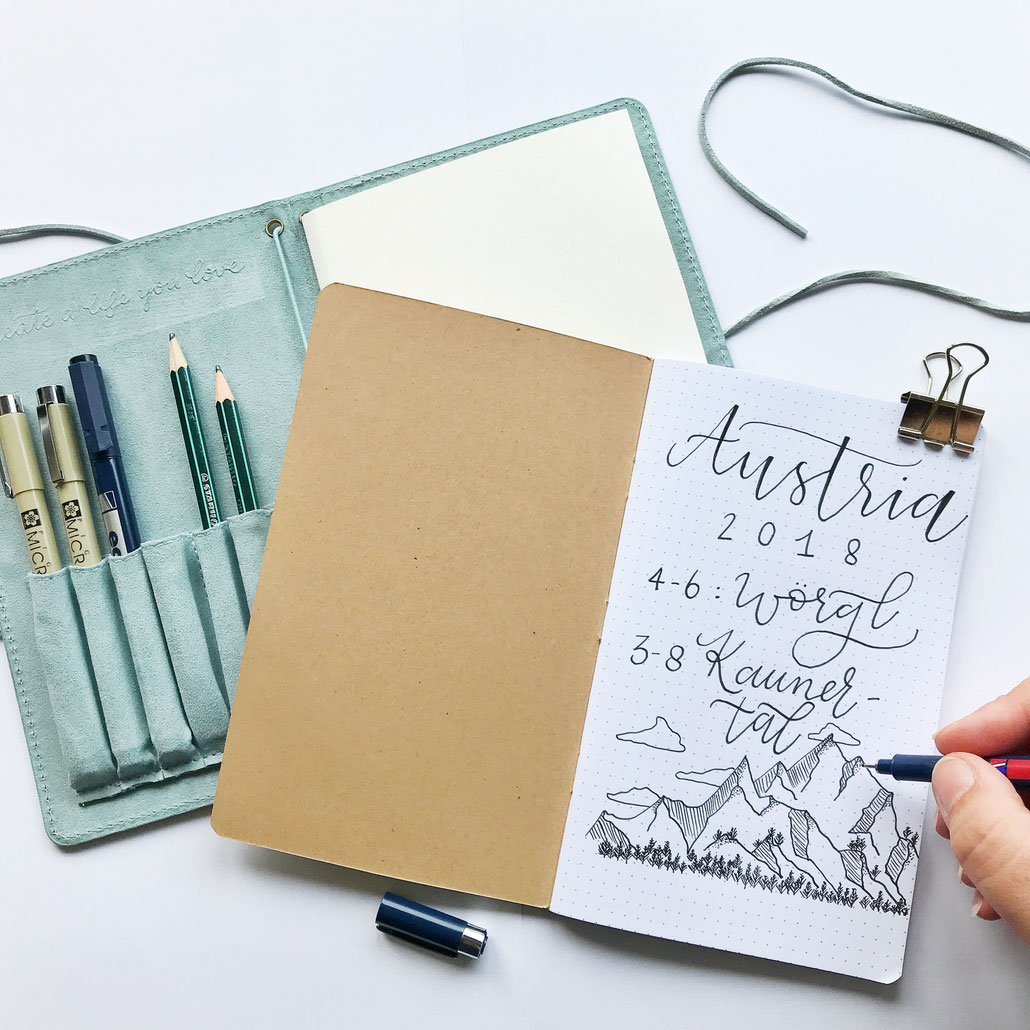 create a life you love
MICR
MICR
STABILO
Austria
2018
4-6: Wörgl
3-8 Kauner-
tal